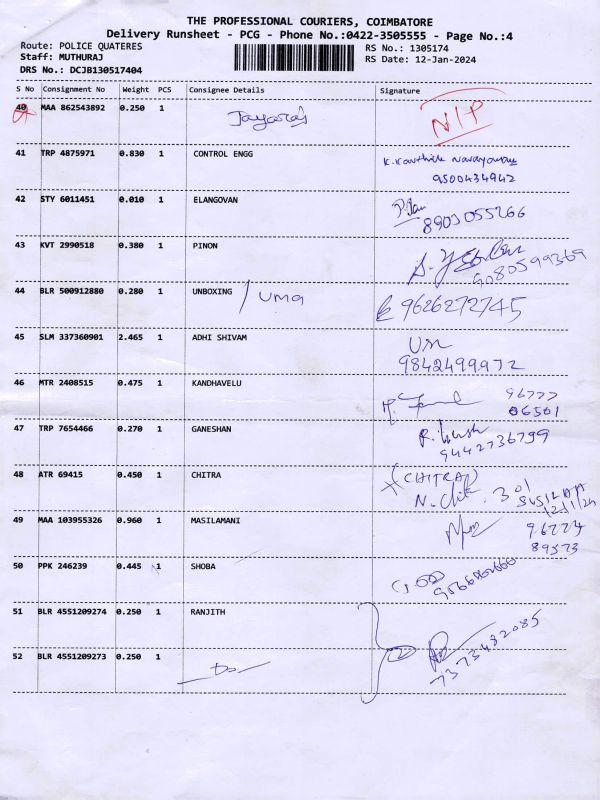 THE PROFESSIONAL COURIERS, COIMBATORE
Delivery Runsheet - PCG - Phone No.:0422-3505555 - Page No.:4
Route: POLICE QUATERES
RS No.: 1305174
Staff: MUTHURAJ
RS Date: 12-Jan-2024
DRS No.: DCJB130517404
S No Consignment No Weight PCS Consignee Details Signature
40 MAA 862543892 0.250 1 Jayaraj
41 TRP 4875971 0.830 1 CONTROL ENGG
9500434942
42 STY 6011451 0.010 1 ELANGOVAN
8903055266
43 KVT 2990518 0.380 1 PINON
9080599369
44 BLR 500912880 0.280 1 UNBOXING / UMA 9626272745
45 SLM 337360901 2.465 1 ADHI SHIVAM
9842499972
46 MTR 2408515 0.475 1 KANDHAVELU
96777
06501
47 TRP 7654466 0.270 1 GANESHAN
9442736799
48 ATR 69415 0.450 1 CHITRA (CHITRA)
301
12/1/24
49 MAA 103955326 0.960 1 MASILAMANI
50 PPK 246239 0.445 1 SHOBA
51 BLR 4551209274 0.250 1 RANJITH
7373482085
52 BLR 4551209273 0.250 1 Do